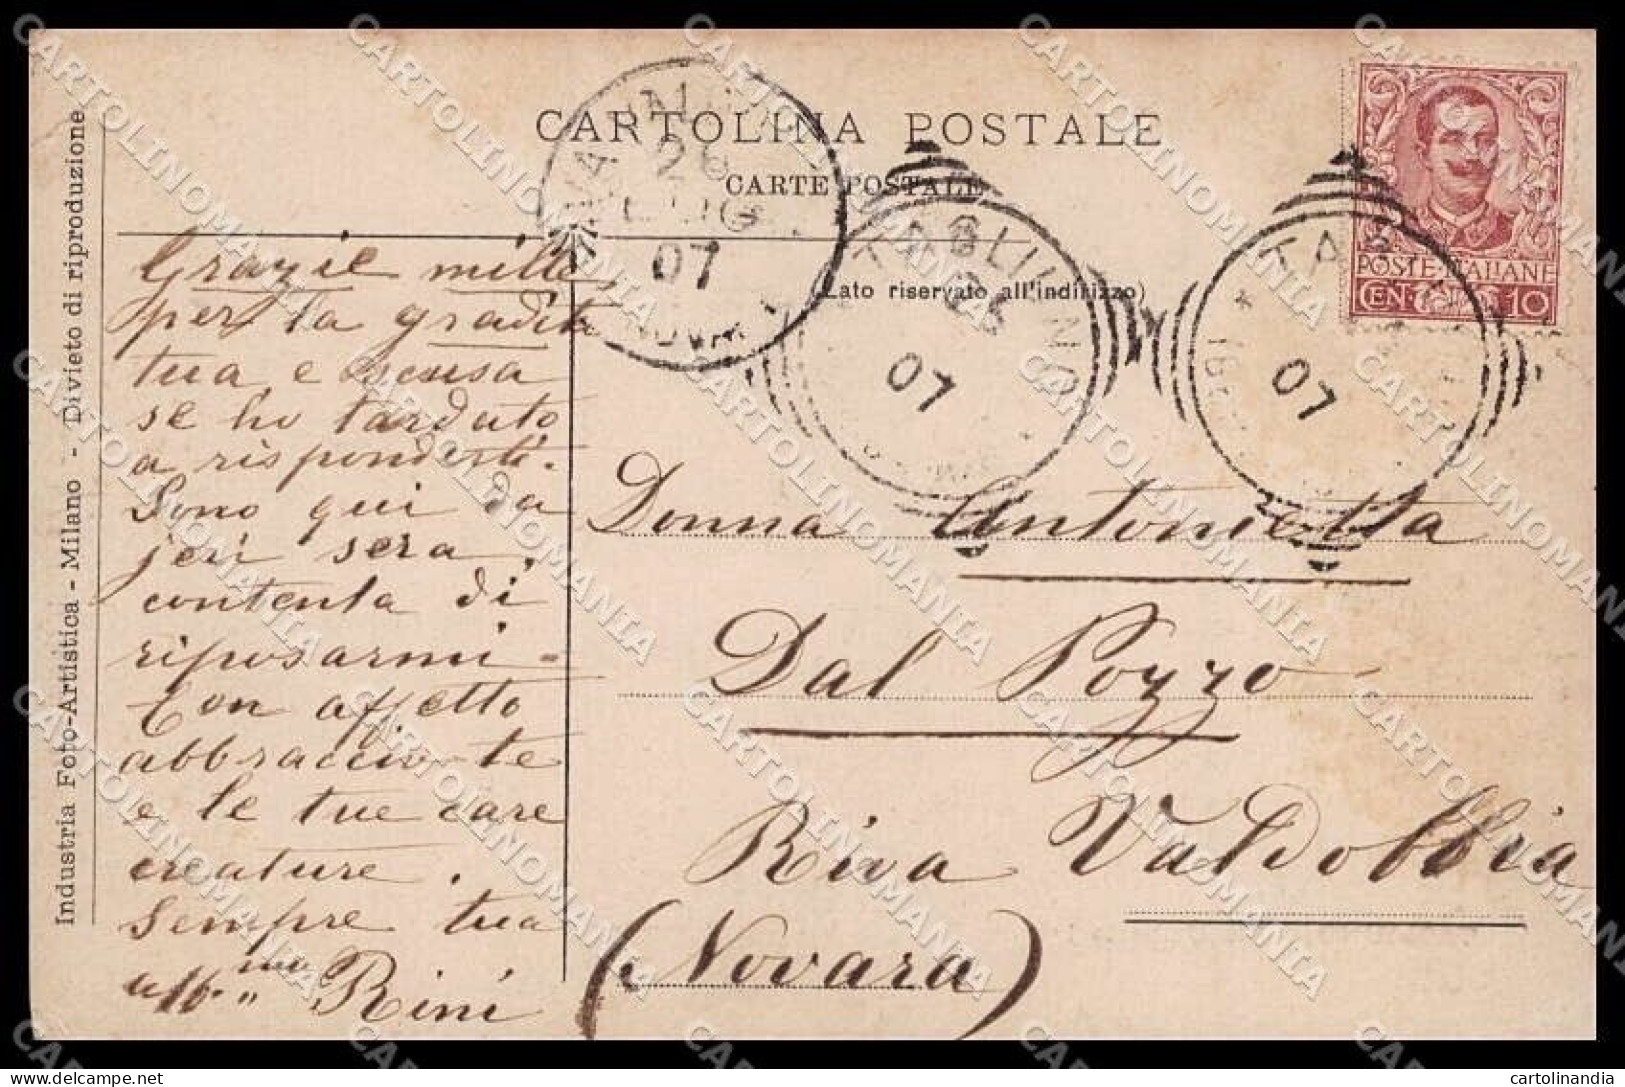 CARTOLINA POSTALE
CARTE POSTALE
(Lato riservato all'indirizzo)
Industria Foto-Artistica - Milano - Divieto di riproduzione
POSTE·ITALIANE
CEN· 10
RIVA VALDO
26
LUG
07
NOVARA
TAGLIUNO
25
07
TAG
07
Grazie mille
per la gradita
tua e scusa
se ho tardato
a risponderti.
Sono qui da
jeri sera,
contenta di
riposarmi -
Con affetto
abbraccio te
e le tue care
creature.
sempre tua
aff.ma Rini
Donna Antonietta
Dal Pozzo
Riva Valdobbia
(Novara)
CARTOLINOMANIA
cartolinandia